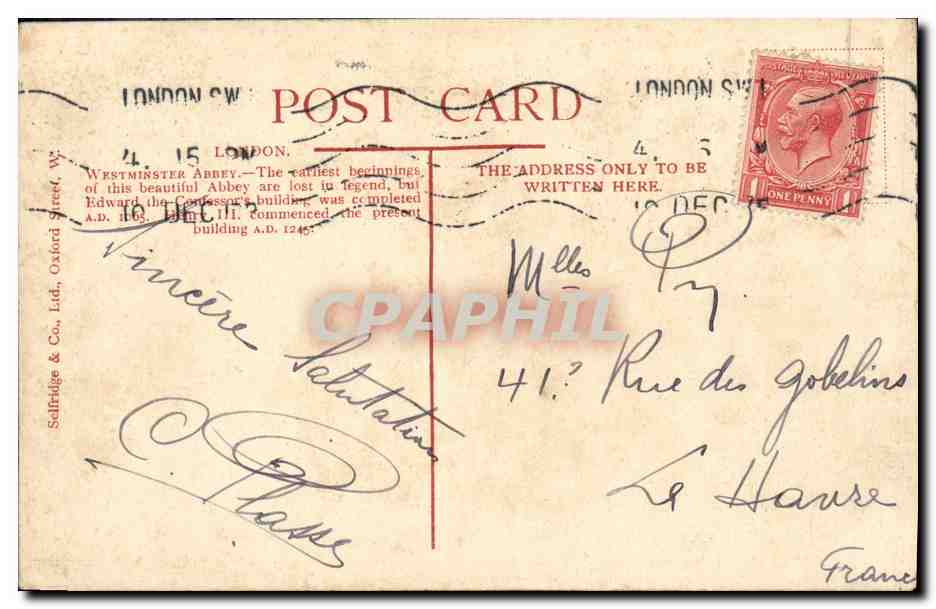 POST CARD
LONDON.
WESTMINSTER ABBEY.—The earliest beginnings
of this beautiful Abbey are lost in legend, but
Edward the Confessor's building was completed
A.D. 1065. III. commenced the present
building A.D. 1245.
THE ADDRESS ONLY TO BE
WRITTEN HERE.
Selfridge & Co., Ltd., Oxford Street, W.
LONDON SW
4. 15 PM
DEC
LONDON S.W.1
4.
DEC
ONE PENNY
1 1
Sincère
Salutations
Plasse
Mlles Py
41? Rue des gobelins
Le Havre
France
CPAPHIL